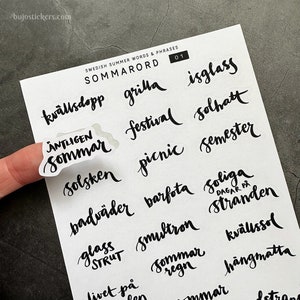 ©bujostickers.com
SWEDISH SUMMER WORDS & PHRASES
SOMMARORD
01
kvällsdopp
grilla
isglass
ÄNTLIGEN
sommar
festival
solhatt
picnic
semester
solsken
barfota
soliga
DAGAR PÅ
stranden
badväder
smultron
kvällssol
glass
STRUT
sommar
regn
hängmatta
livet på